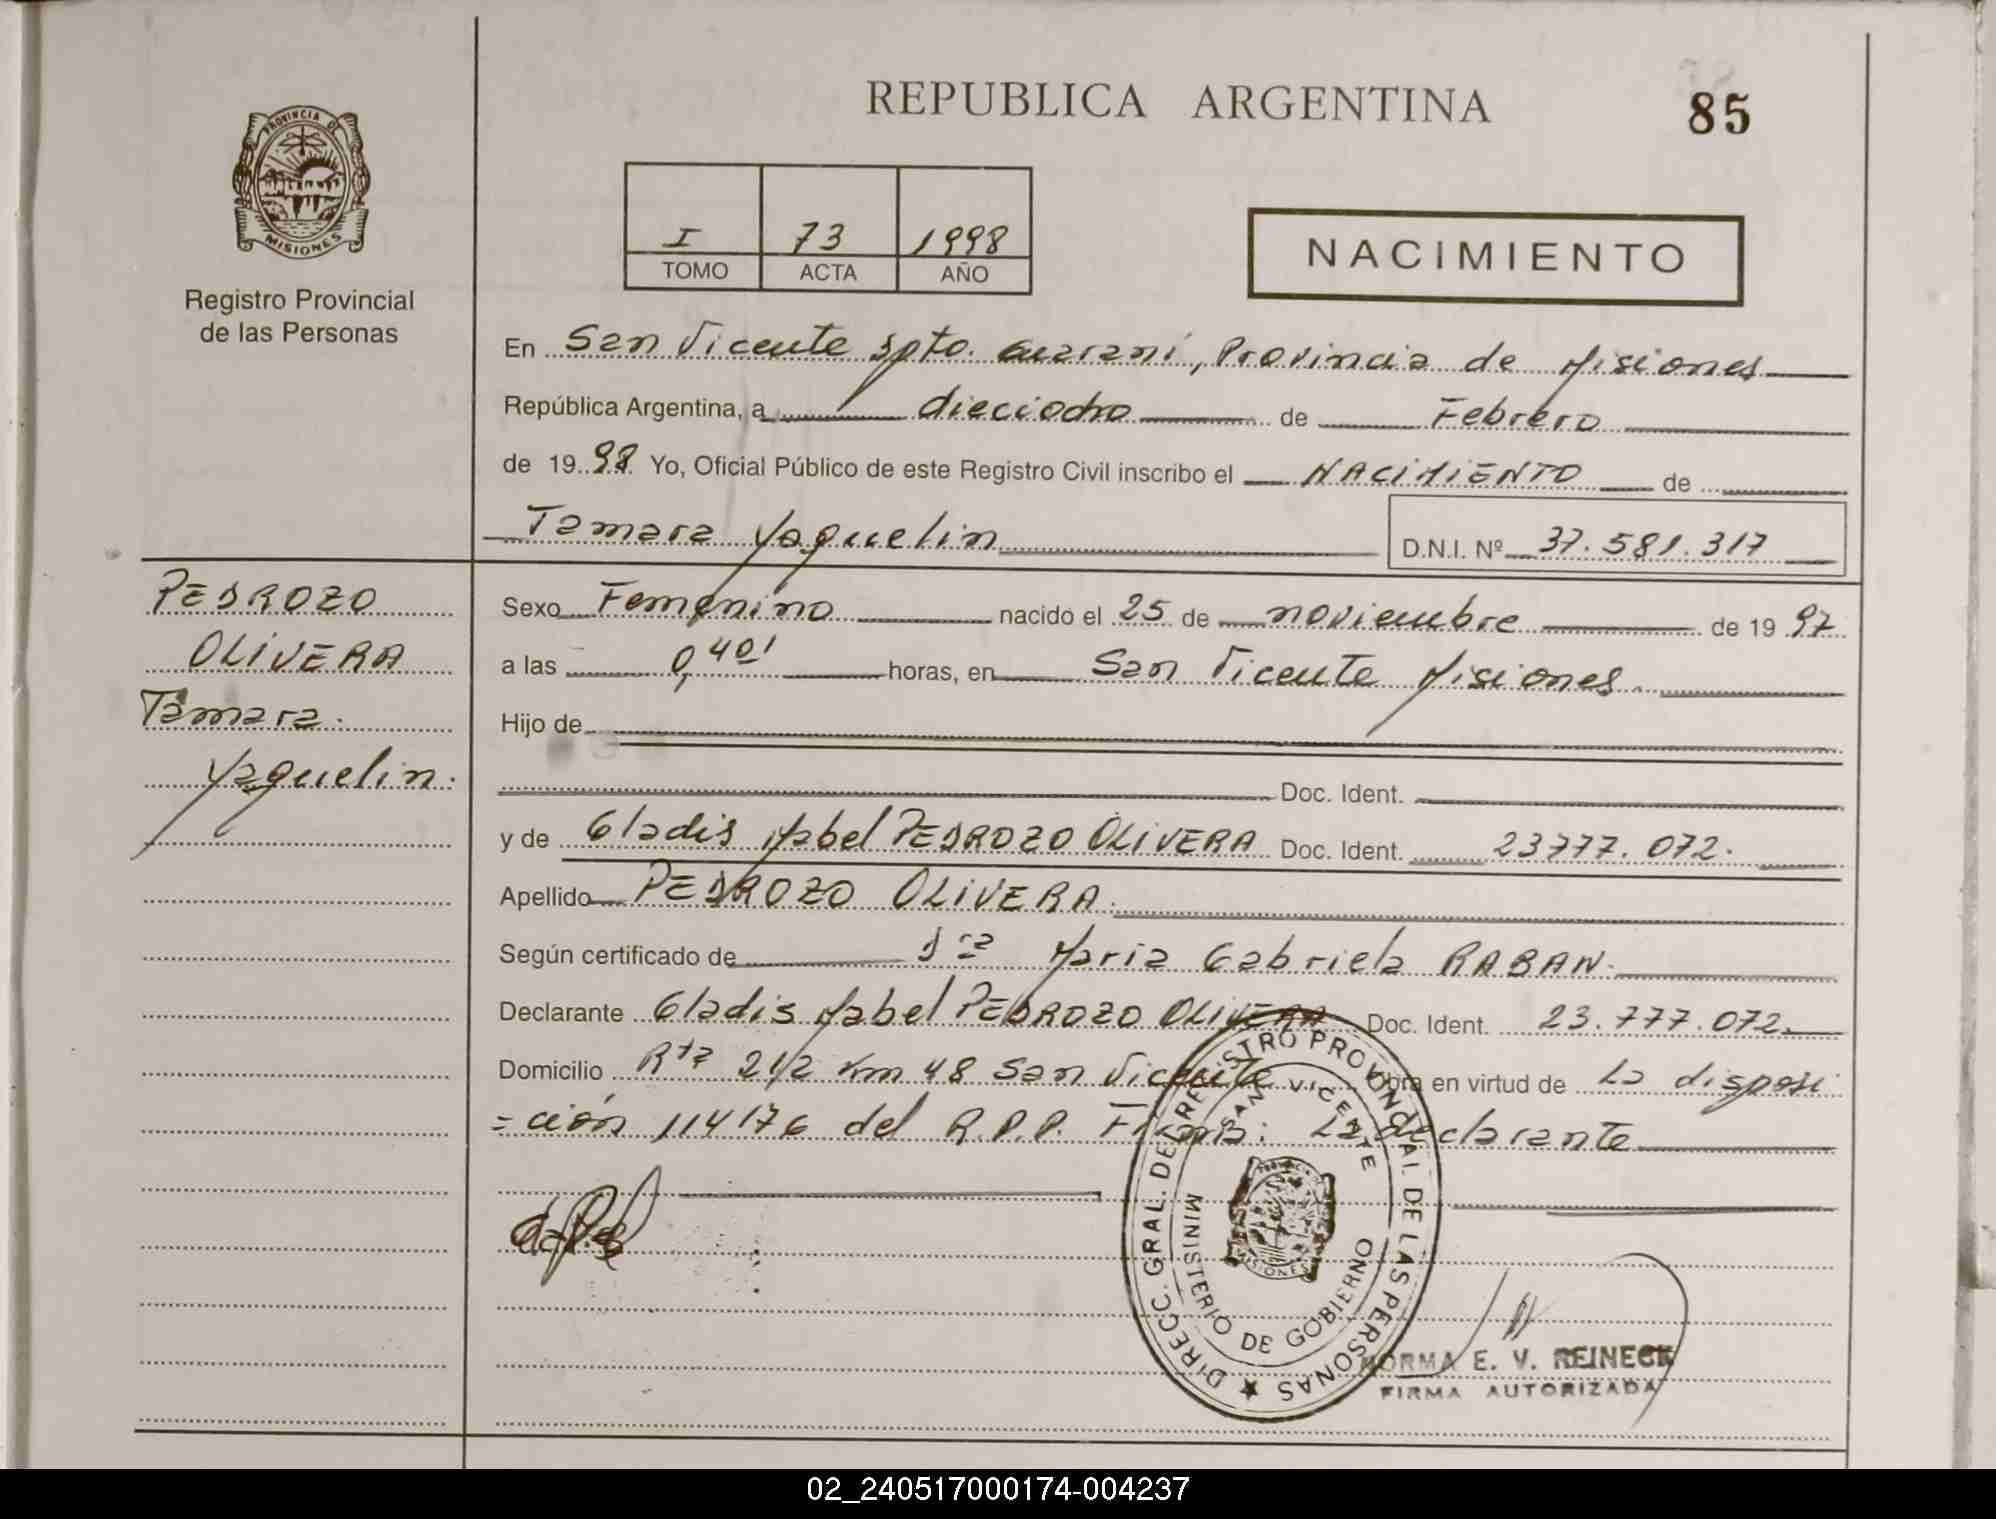 REPUBLICA ARGENTINA
85
PROVINCIA DE
MISIONES
Registro Provincial
de las Personas
I 73 1998
TOMO ACTA AÑO
NACIMIENTO
En San Vicente Dpto. Guaraní, Provincia de Misiones
República Argentina, a dieciocho de Febrero
de 1998 Yo, Oficial Público de este Registro Civil inscribo el NACIMIENTO de
Tamara Yaquelin
D.N.I. Nº 37.581.317
PEDROZO
OLIVERA
Tamara.
Yaquelin.
Sexo Femenino nacido el 25 de noviembre de 1997
a las 0,40' horas, en San Vicente Misiones.
Hijo de
Doc. Ident.
y de Gladis Mabel PEDROZO OLIVERA Doc. Ident. 23777.072.
Apellido PEDROZO OLIVERA.
Según certificado de Dra Maria Gabriela RABAN.
Declarante Gladis Mabel PEDROZO OLIVERA Doc. Ident. 23.777.072.
Domicilio Rta 212 Km 48 San Vicente Obra en virtud de La disposi
=ción 114176 del R.P.P. Firma: La declarante
DIRECC. GRAL. DEL REGISTRO PROVINCIAL DE LAS PERSONAS
SAN VICENTE
MINISTERIO DE GOBIERNO
MISIONES
NORMA E. V. REINECK
FIRMA AUTORIZADA
02_240517000174-004237